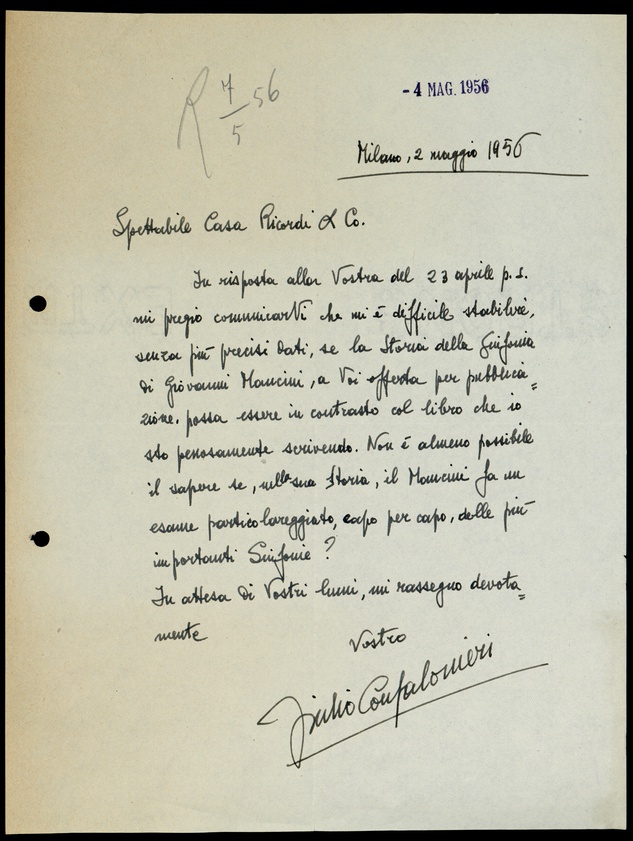 R 7/5 56
- 4 MAG. 1956
Milano, 2 maggio 1956
Spettabile Casa Ricordi & Co.
In risposta alla Vostra del 23 aprile p. s.
mi pregio comunicarVi che mi è difficile stabilire,
senza più precisi dati, se la Storia della Sinfonia
di Giovanni Mancini, a Voi offerta per pubblica=
zione, possa essere in contrasto col libro che io
sto penosamente scrivendo. Non è almeno possibile
il sapere se, nella sua Storia, il Mancini fa un
esame particolareggiato, capo per capo, delle più
importanti Sinfonie?
In attesa di Vostri lumi, mi rassegno devota=
mente
Vostro
Giulio Confalonieri